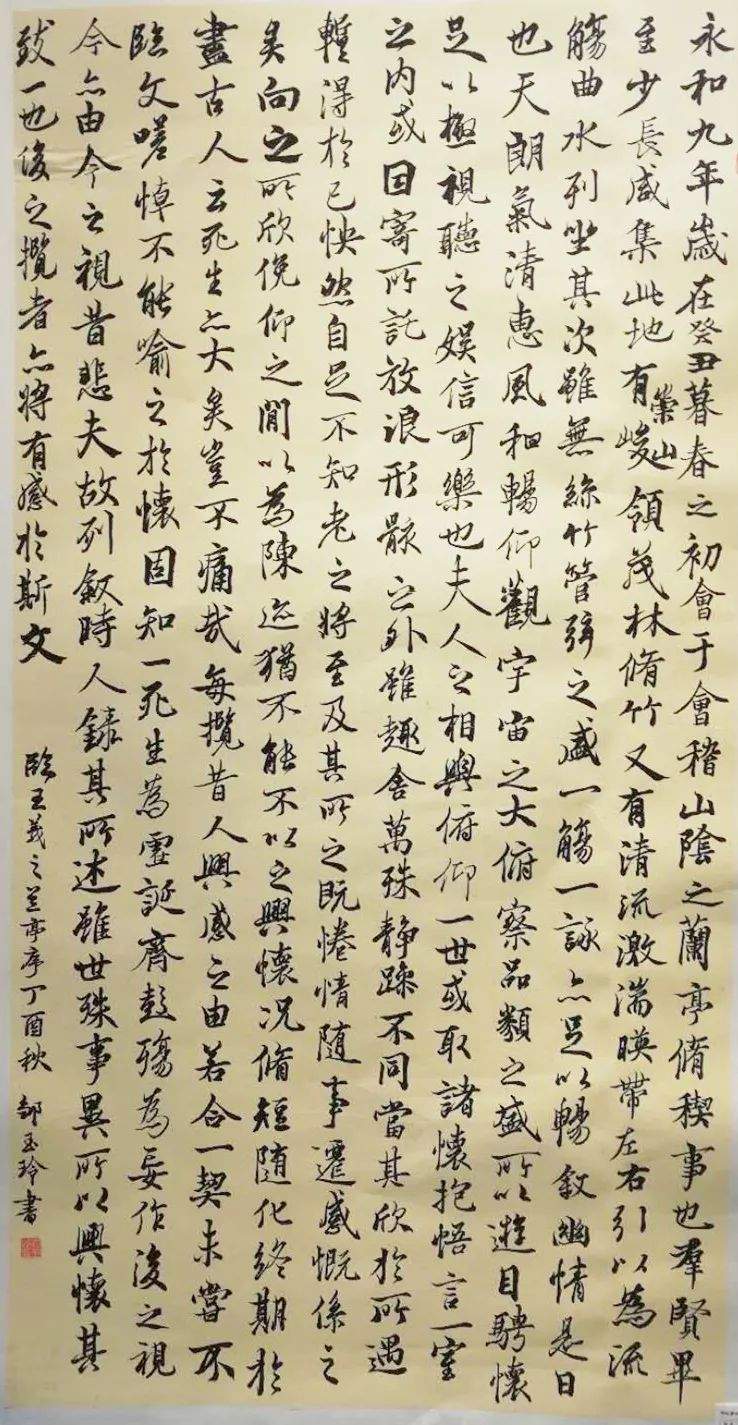 永和九年歲在癸丑暮春之初會于會稽山陰之蘭亭脩稧事也羣賢畢
至少長咸集此地有崇山峻領茂林脩竹又有清流激湍暎帶左右引以為流
觴曲水列坐其次雖無絲竹管弦之盛一觴一詠亦足以暢敘幽情是日
也天朗氣清惠風和暢仰觀宇宙之大俯察品類之盛所以遊目騁懷
足以極視聽之娛信可樂也夫人之相與俯仰一世或取諸懷抱悟言一室
之內或因寄所託放浪形骸之外雖趣舍萬殊靜躁不同當其欣於所遇
暫得於己怏然自足不知老之將至及其所之既惓情隨事遷感慨係之
矣向之所欣俛仰之閒以為陳迹猶不能不以之興懷況脩短隨化終期於
盡古人云死生亦大矣豈不痛哉每攬昔人興感之由若合一契未嘗不
臨文嗟悼不能喻之於懷固知一死生為虛誕齊彭殤為妄作後之視
今亦由今之視昔悲夫故列敘時人錄其所述雖世殊事異所以興懷其
致一也後之攬者亦將有感於斯文
臨王羲之兰亭序丁酉秋 邹玉玲書